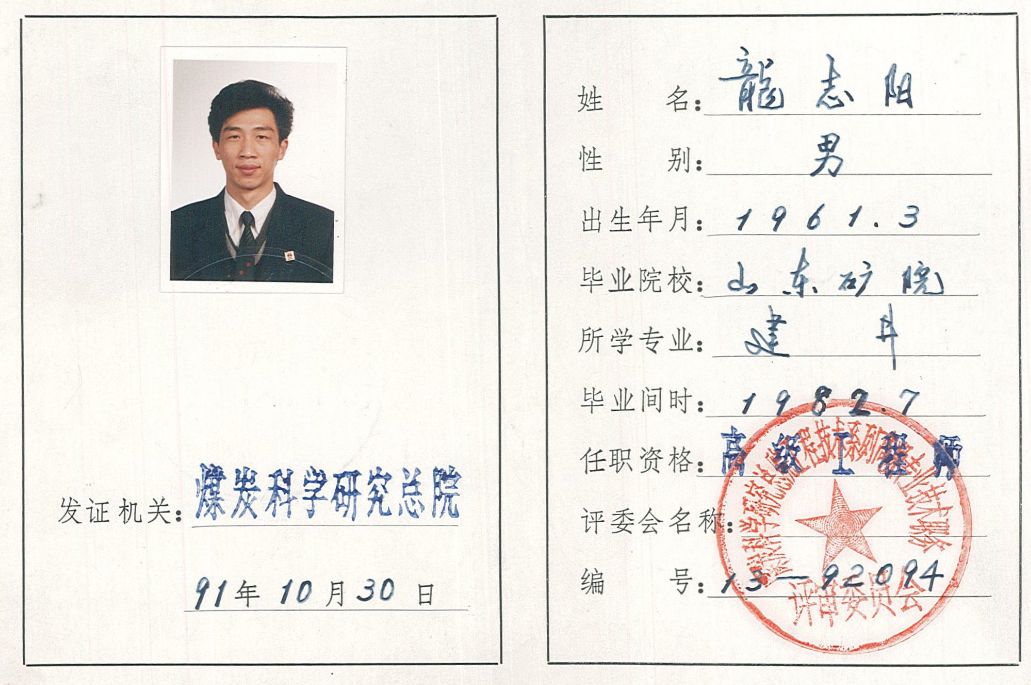 发证机关：煤炭科学研究总院
91年10月30日
姓 名：龍志阳
性 别：男
出生年月：1961.3
毕业院校：山东矿院
所学专业：建井
毕业间时：1982.7
任职资格：高级工程师
评委会名称：
编 号：13—92094
评审委员会